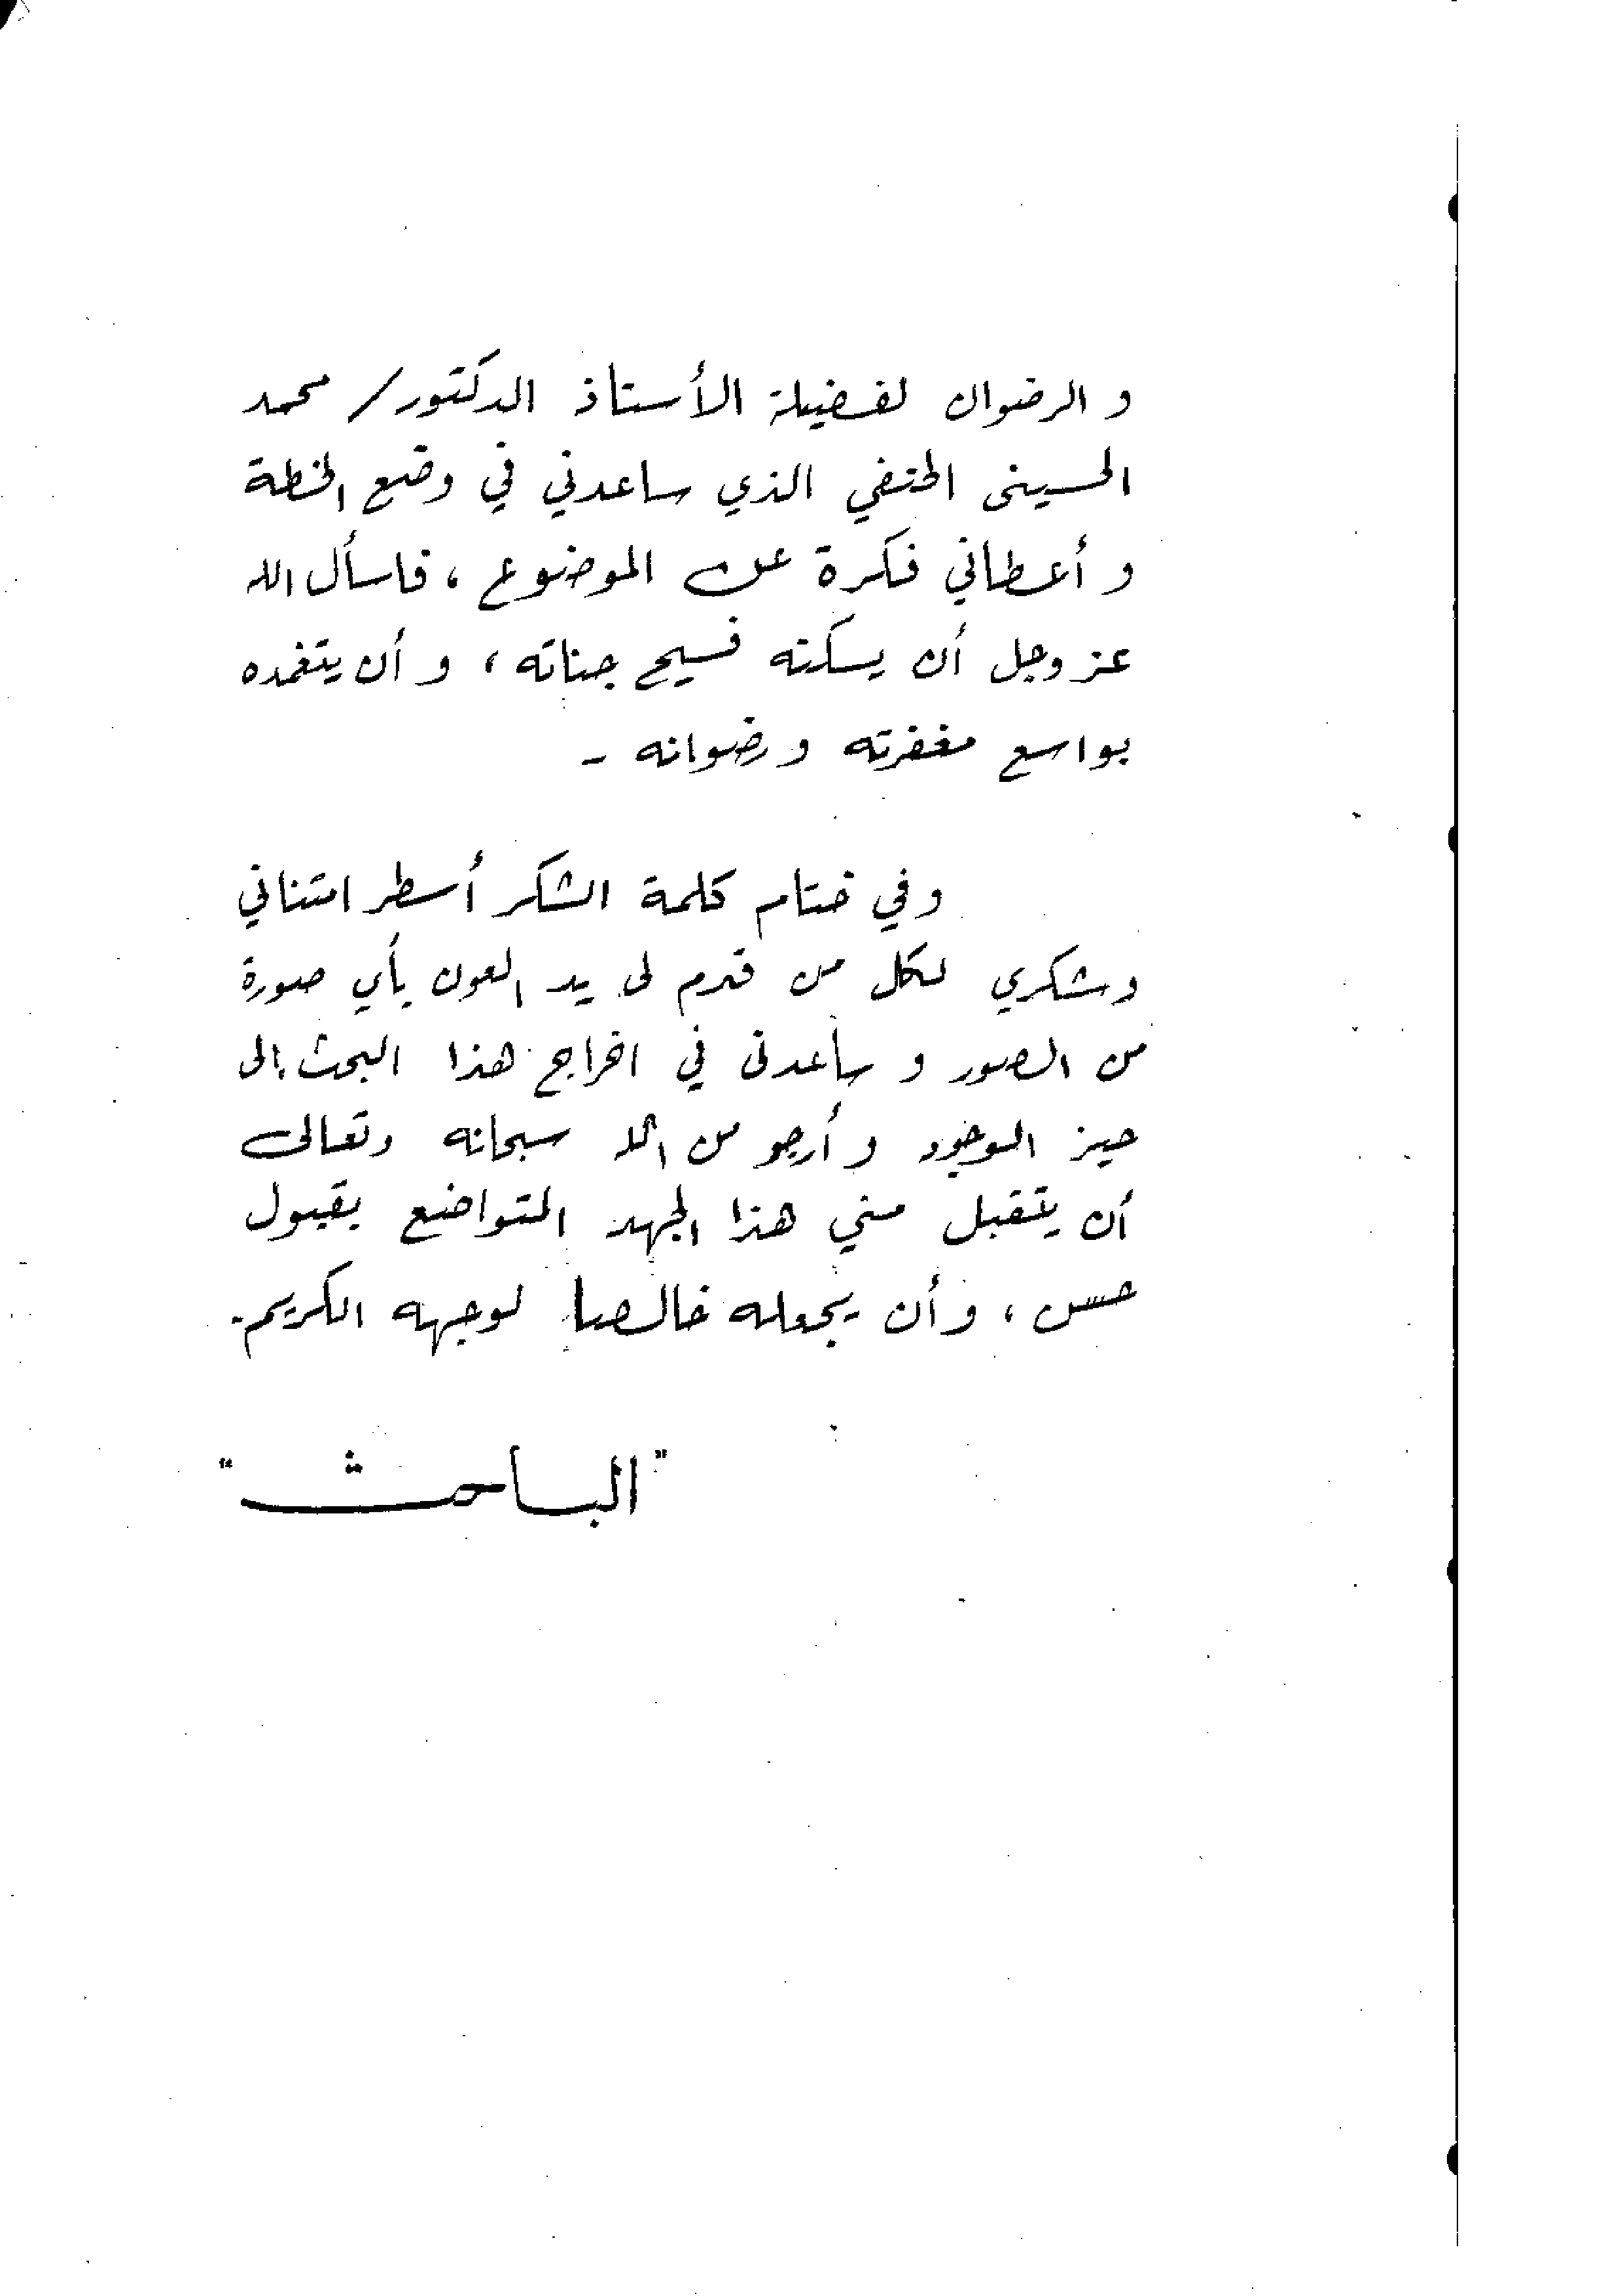 و الرضوان لفضيلة الأستاذ الدكتور/ محمد
الحسيني الحنفي الذي ساعدني في وضع الخطة
و أعطاني فكرة عن الموضوع ، فاسأل الله
عز وجل أن يسكنه فسيح جناته ، و أن يتغمده
بواسع مغفرته و رضوانه -
وفي ختام كلمة الشكر أسطر امتناني
وشكري لكل من قدم لى يد العون بأي صورة
من الصور و ساعدنى في اخراج هذا البحث إلى
حيز الوجود و أرجو من الله سبحانه وتعالى
أن يتقبل مني هذا الجهد المتواضع بقبول
حسن ، وأن يجعله خالصا لوجهه الكريم.
"الباحث"